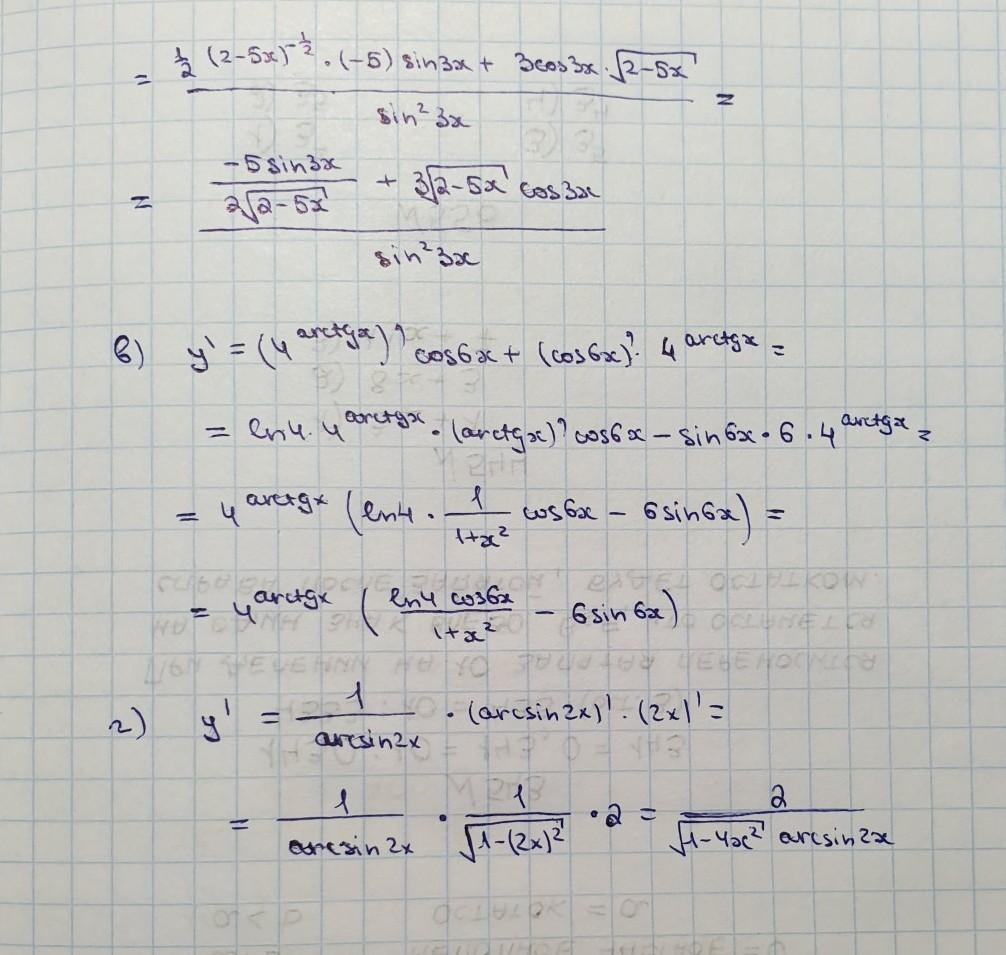 = (1/2 (2-5x)^(-1/2) · (-5) sin3x + 3cos3x · √(2-5x)) / (sin² 3x) =
= ((-5sin3x)/(2√(2-5x)) + 3√(2-5x) cos3x) / (sin² 3x)
в) y' = (4^(arctgx))' cos6x + (cos6x)' · 4^(arctgx) =
= ln4 · 4^(arctgx) · (arctgx)' cos6x - sin6x · 6 · 4^(arctgx) =
= 4^(arctgx) (ln4 · 1/(1+x²) cos6x - 6sin6x) =
= 4^(arctgx) ((ln4 cos6x)/(1+x²) - 6sin6x)
г) y' = 1/(arcsin2x) · (arcsin2x)' · (2x)' =
= 1/(arcsin2x) · 1/√(1-(2x)²) · 2 = 2/(√(1-4x²) arcsin2x)